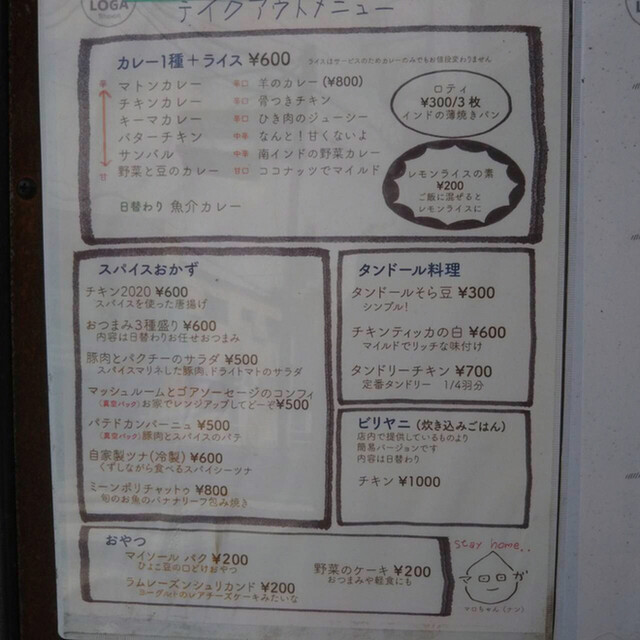 LOGA
テイクアウトメニュー
カレー1種+ライス ¥600 ライスはサービスのためカレーのみでもお値段変わりません
辛 マトンカレー 辛口 羊のカレー(¥800)
チキンカレー 辛口 骨つきチキン
キーマカレー 辛口 ひき肉のジューシー
バターチキン 中辛 なんと!甘くないよ
サンバル 中辛 南インドの野菜カレー
甘 野菜と豆のカレー 甘口 ココナッツでマイルド
日替わり 魚介カレー
ロティ
¥300/3枚
インドの薄焼きパン
レモンライスの素
¥200
ご飯に混ぜると
レモンライスに
スパイスおかず
チキン2020 ¥600
スパイスを使った唐揚げ
おつまみ3種盛り ¥600
内容は日替わりお任せおつまみ
豚肉とパクチーのサラダ ¥500
スパイスマリネした豚肉、ドライトマトのサラダ
マッシュルームとゴアソーセージのコンフィ
(真空パック) お家でレンジアップしてどーぞ ¥500
パテドカンパーニュ ¥500
(真空パック) 豚肉とスパイスのパテ
自家製ツナ(冷製) ¥600
くずしながら食べるスパイシーツナ
ミーンポリチャットゥ ¥800
旬のお魚のバナナリーフ包み焼き
タンドール料理
タンドールそら豆 ¥300
シンプル!
チキンティッカの白 ¥600
マイルドでリッチな味付け
タンドリーチキン ¥700
定番タンドリー 1/4羽分
ビリヤニ (炊き込みごはん)
店内で提供しているものより
簡易バージョンです
内容は日替わり
チキン ¥1000
おやつ
マイソール パク ¥200
ひよこ豆の口どけおやつ
ラムレーズンシュリカンド ¥200
ヨーグルトのレアチーズケーキみたいな
野菜のケーキ ¥200
おつまみや軽食にも
stay home..
マロロガ
マロちゃん(ナン)